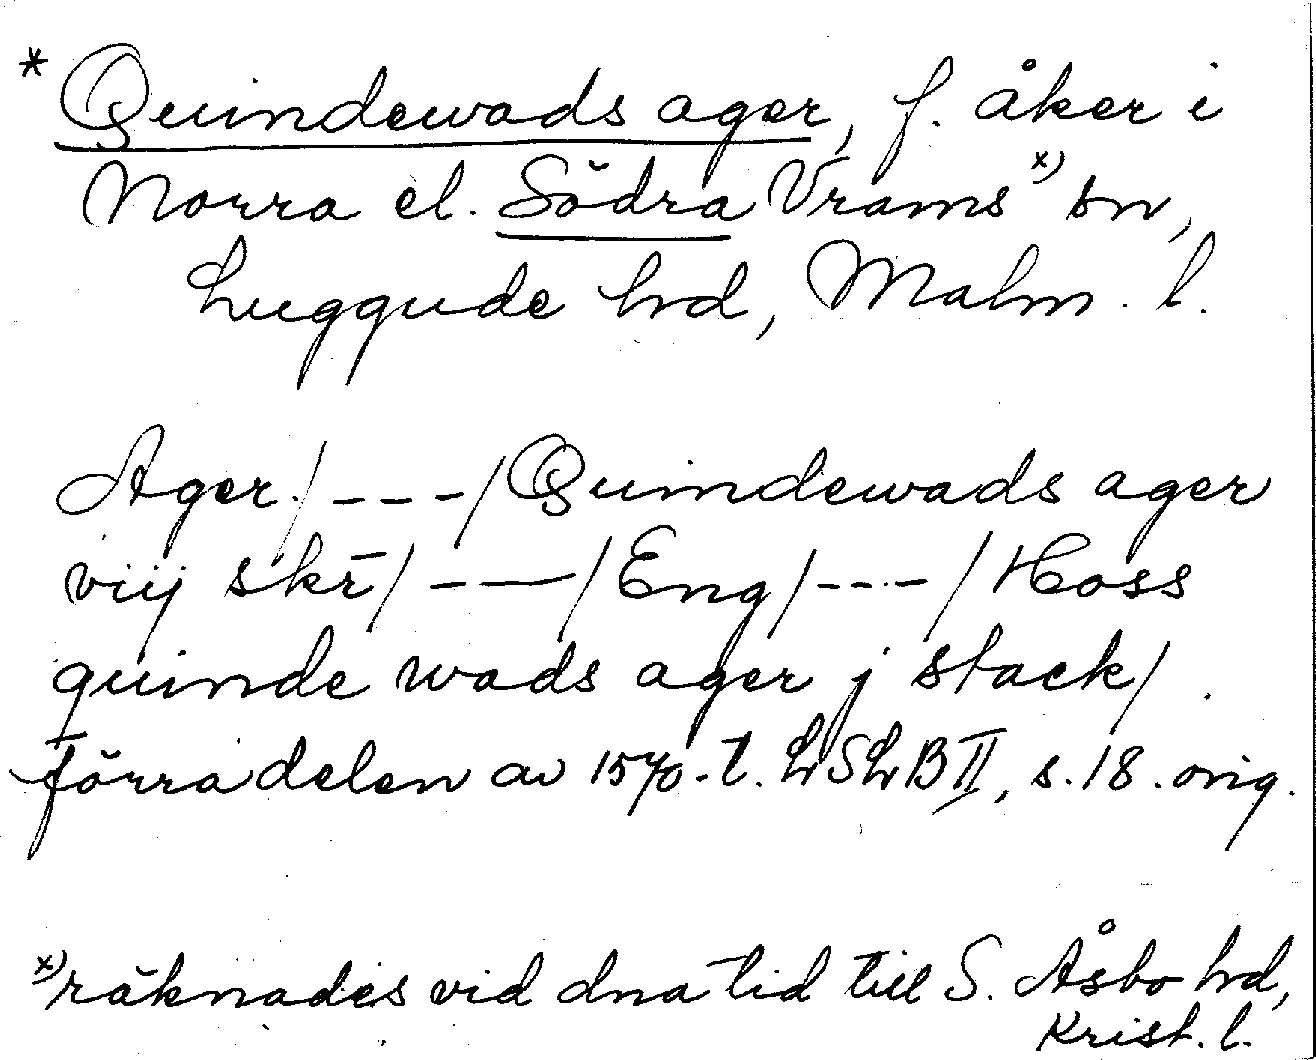 * Quindewads ager, f. åker i
Norra el. Södra Vrams x) sn,
Luggude hrd, Malm. l.
Ager./---/Quindewads ager
viij skr̄/---/Eng/---/Hoss
quinde wads ager j stack/.
förra delen av 1570-t. LSLB II, s. 18. orig.
x) räknades vid dna tid till S. Åsbo hrd,
Krist. l.